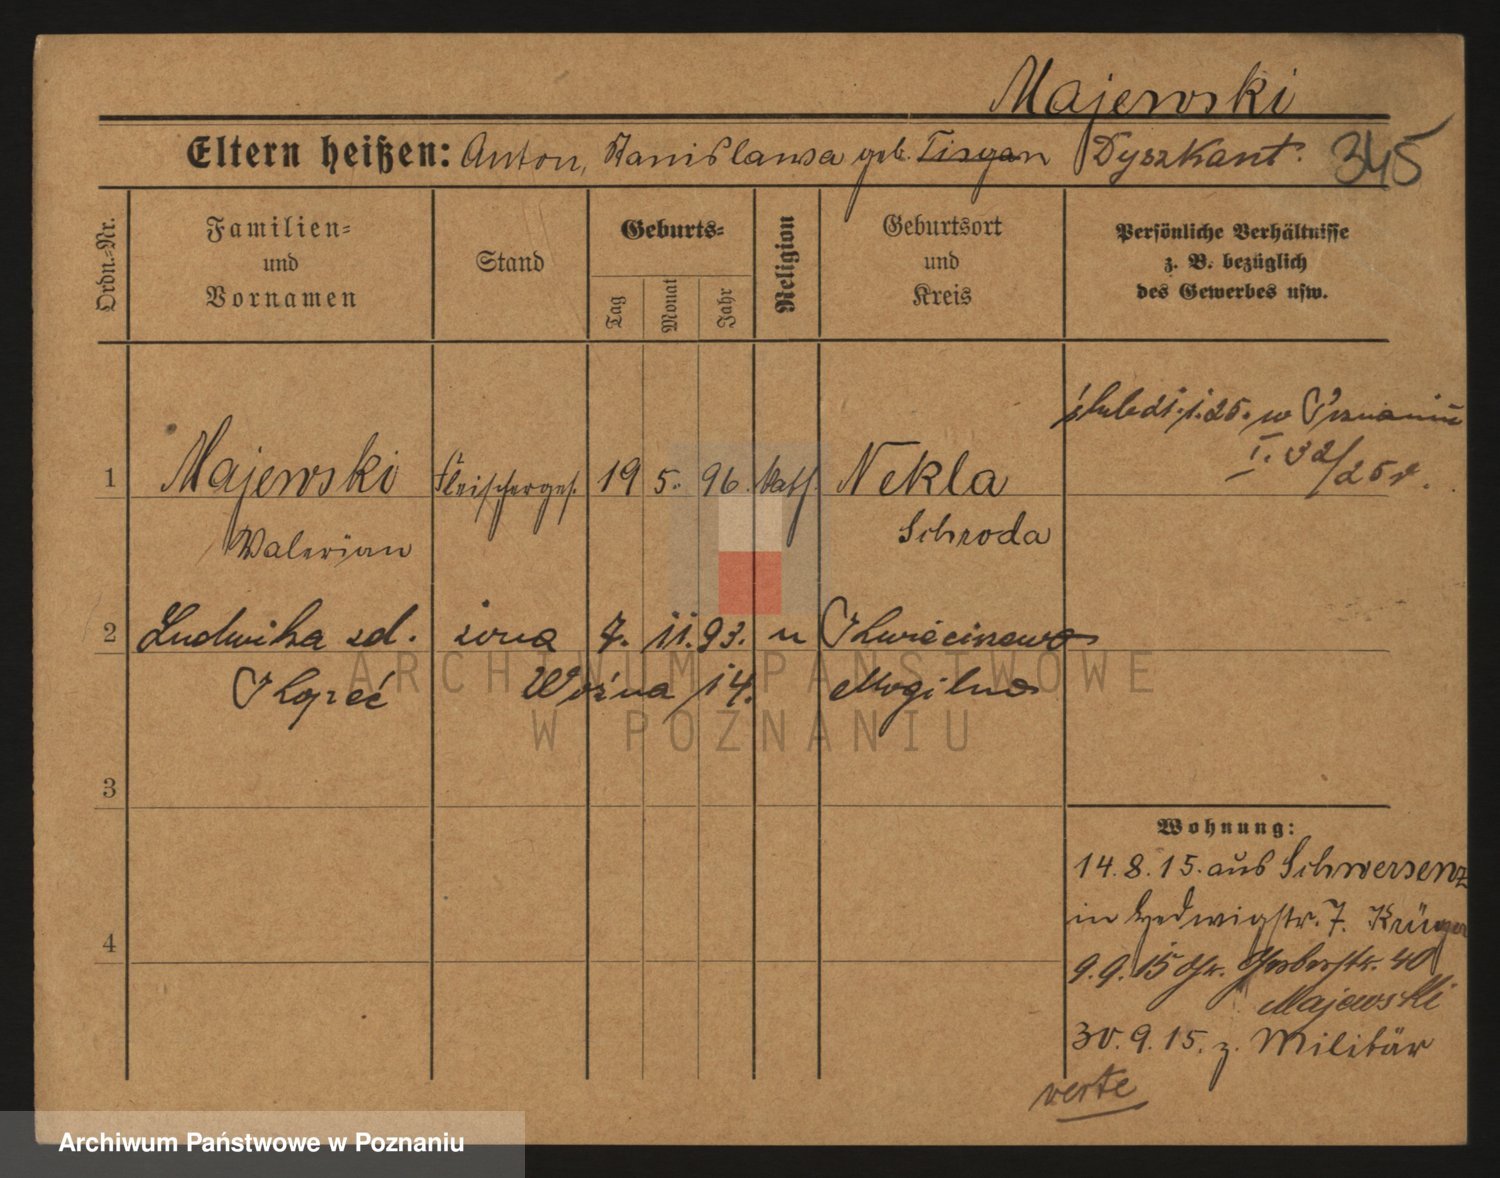 Majewski
Eltern heißen: Anton, Stanislawa geb. Tisgan Dyszkant. 345
Ordn.-Nr.
Familien- und Vornamen
Stand
Geburts-
Tag
Monat
Jahr
Religion
Geburtsort und Kreis
Persönliche Verhältnisse
z. B. bezüglich
des Gewerbes usw.
ślub 21.1.25. w Poznaniu
I. 32/25 r.
1 Majewski Fleischerges. 19 5. 96. kath. Nekla
Valerian Schroda
2 Ludwika zd. żona 7. 11. 93. "
Kopeć Woźna 14. Mogilno
3
4
Wohnung:
14.8.15. aus Schwersenz
in Hedwigstr. 7. Krüger
9.9.15 Gr. Gerberstr. 40
Majewski
30.9.15. z. Militär
verte
ARCHIWUM PAŃSTWOWE
W POZNANIU
Archiwum Państwowe w Poznaniu